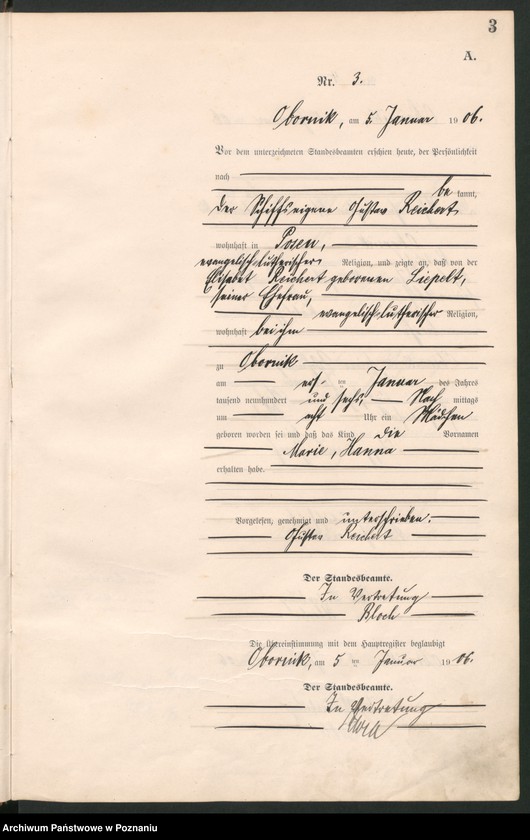 3
A.
Nr. 3.
Obornik, am 5. Januar 1906.
Vor dem unterzeichneten Standesbeamten erschien heute, der Persönlichkeit
nach
be kannt,
der Schiffseigene Gustav Reichert
wohnhaft in Posen,
evangelisch-lutherischer Religion, und zeigte an, daß von der
Elisabet Reichert geborenen Liepelt,
seiner Ehefrau,
evangelisch-lutherischer Religion,
wohnhaft bei ihm
zu Obornik
am ersten Januar des Jahres
tausend neunhundert und sechs, Nach mittags
um acht Uhr ein Mädchen
geboren worden sei und daß das Kind die Vornamen
Marie, Hanna
erhalten habe.
Vorgelesen, genehmigt und unterschrieben:
Gustav Reichert
Der Standesbeamte.
In Vertretung
Bloch
Die Übereinstimmung mit dem Hauptregister beglaubigt
Obornik, am 5 ten Januar 1906.
Der Standesbeamte.
In Vertretung
Archiwum Państwowe w Poznaniu